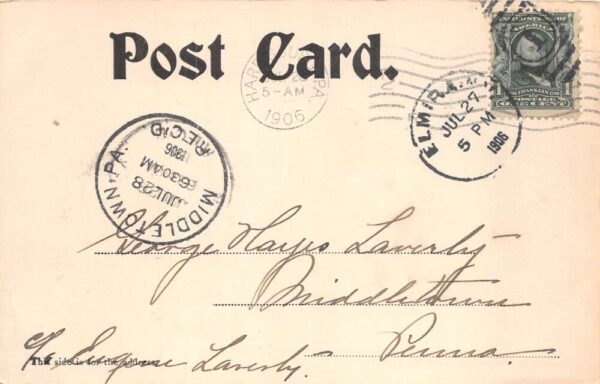 Post Card.
HARR PA.
5-AM
1906
ELMIRA
JUL 27
5 PM
1906
UNITED STATES OF
AMERICA
1 FRANKLIN 1
POSTAGE
ONE CENT
MIDDLETOWN, PA.
JUL 28
630AM
1906
REC'D
George Hayes Laverty
Middletown
Penna.
c/o Eugene Laverty.
This side is for the address.